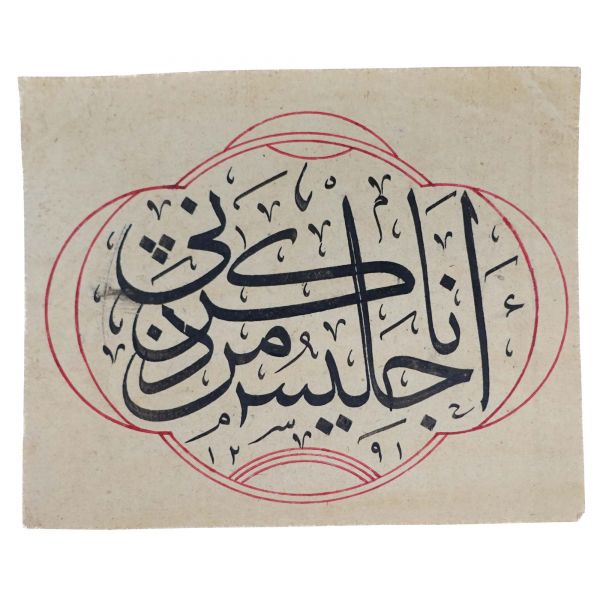 أنا جليس من ذكرني
١٢٩١